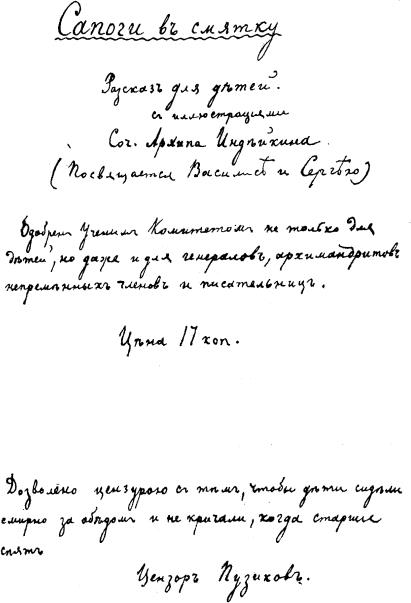 Сапоги въ смятку
Разсказъ для дѣтей.
съ иллюстраціями
Соч. Архипа Индѣйкина.
(Посвящается Василисѣ и Сергѣю)
Одобренъ Ученымъ Комитетомъ не только для
дѣтей, но даже и для генераловъ, архимандритовъ
непремѣнныхъ членовъ и писательницъ.
Цѣна 17 коп.
Дозволено цензурою съ тѣмъ, чтобы дѣти сидѣли
смирно за обѣдомъ и не кричали, когда старшіе
спятъ
Цензоръ Пузиковъ.